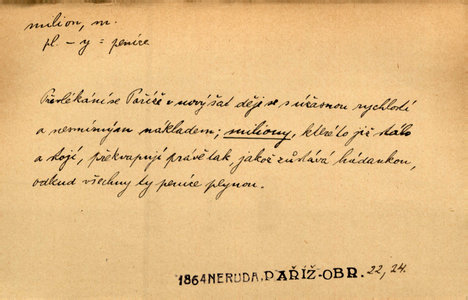 milion, m.
pl. -y = peníze
Převlékání se Paříže v nový šat děje se s úžasnou rychlostí
a nesmírným nákladem; miliony, které to již stálo
a stojí, překvapují právě tak, jakož zůstává hádankou,
odkud všechny ty peníze plynou.
1864 NERUDA, PAŘÍŽ-OBR. 22, 24.